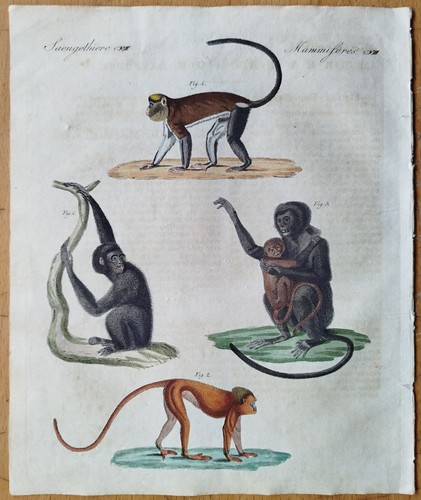 Saeugethiere
Mammifères
Fig. 4.
Fig. 1.
Fig. 3.
Fig. 2.